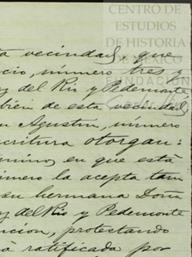 CENTRO DE
ESTUDIOS
DE HISTORIA
DE MÉXICO
FUNDACIÓN
ta vecindad, que
cio, número tres y
y del Rio y Pedemonte
bien de esta vecindad,
n Agustin, número
scritura otorgan:
mino, en que está
imero la acepta tam
su hermana Doña
y del Rio y Pedemonte
ncion, protestando
á ratificada por